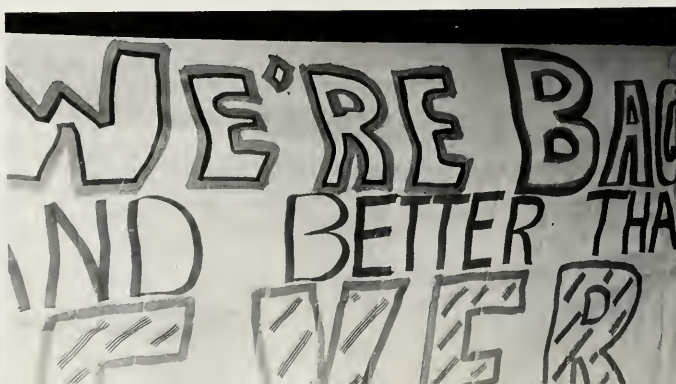 WE'RE BAC
AND BETTER THA
EVER